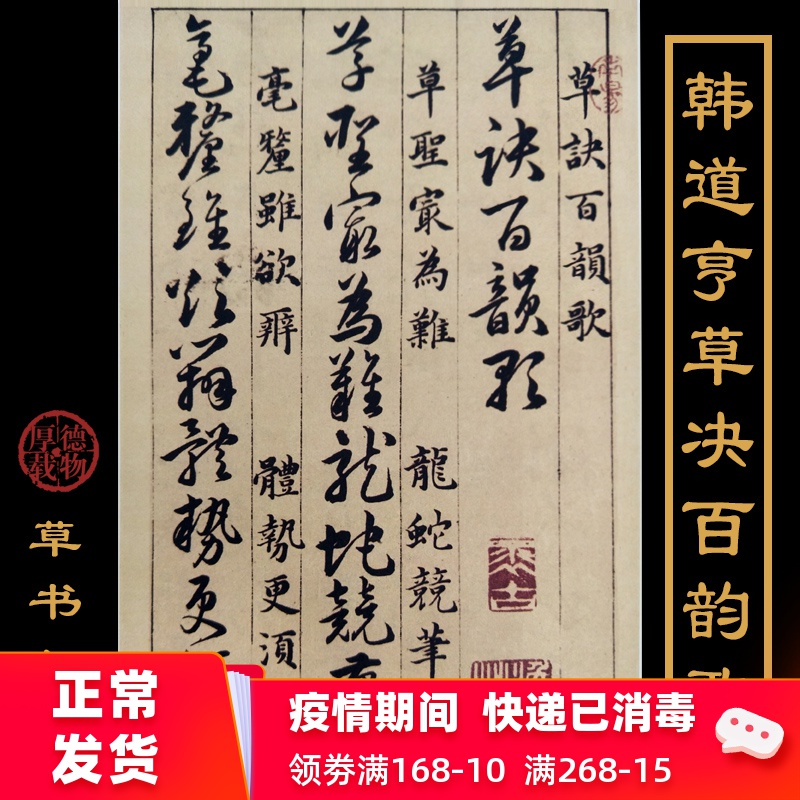 韩道亨草决百韵歌
草訣百韻歌
草訣百韻歌
草聖㝡為難 龍蛇競筆
草聖㝡為難龍蛇競
毫釐雖欲辨 體勢更須
毫釐雖欲辨體勢更
厚德载物
草书
正常
发货
疫情期间 快递已消毒
领券满168-10 满268-15